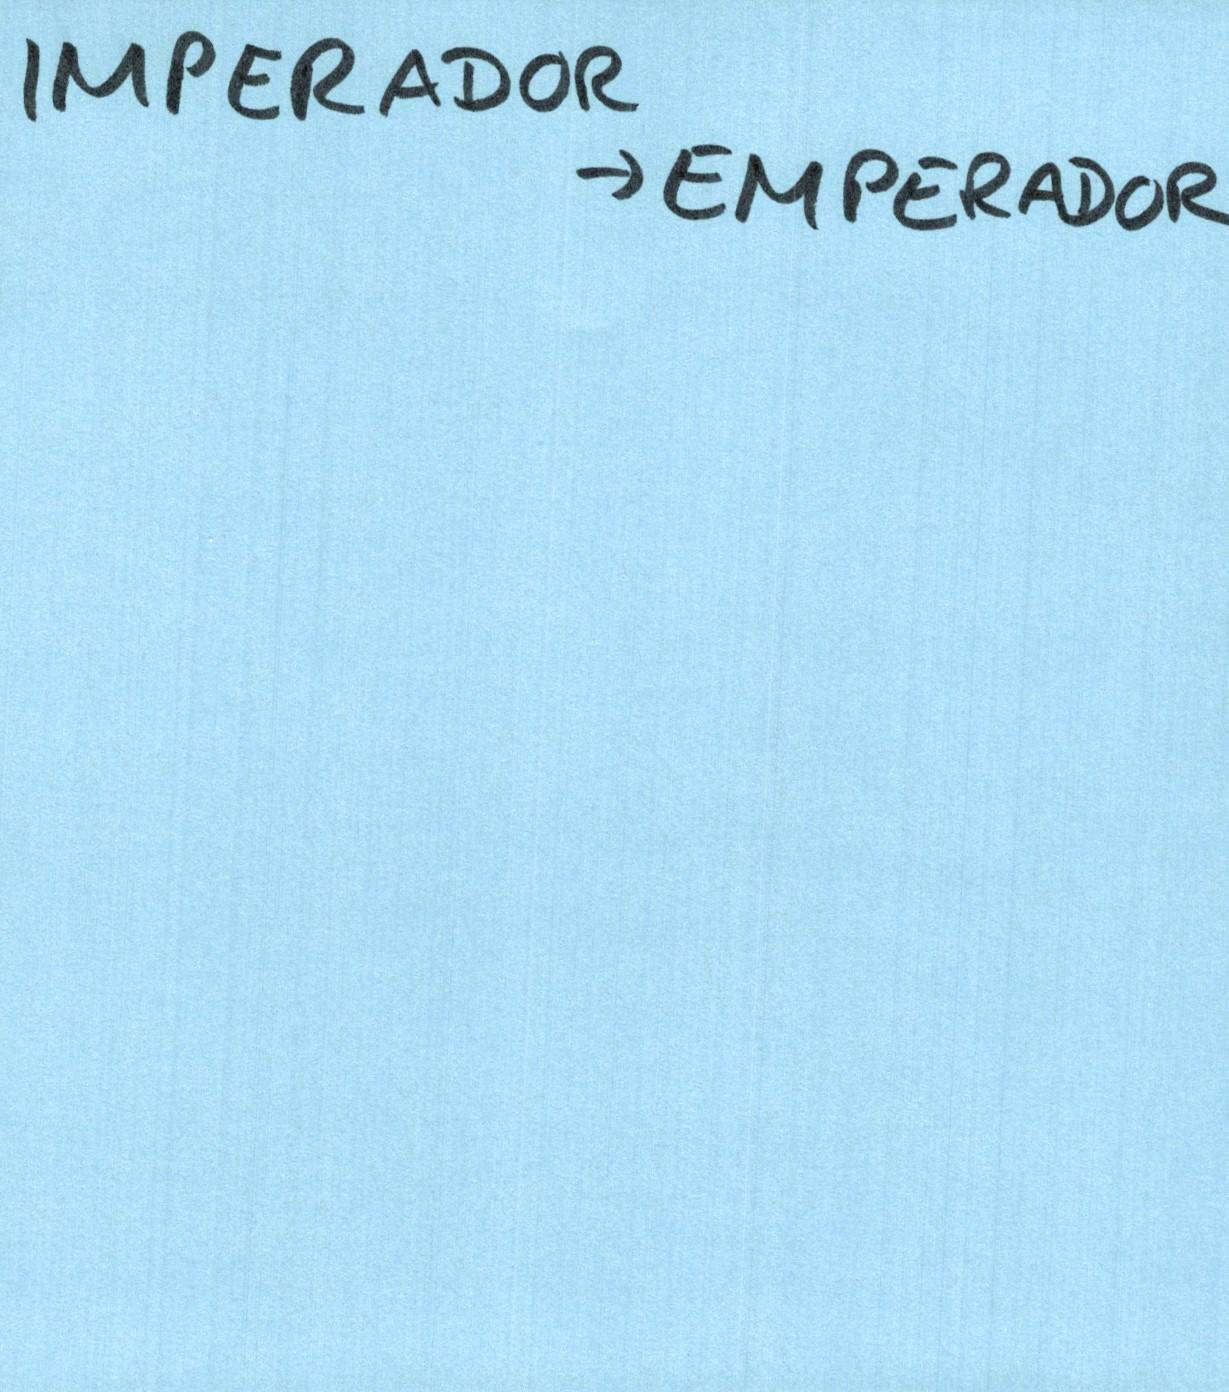 IMPERADOR
→ EMPERADOR